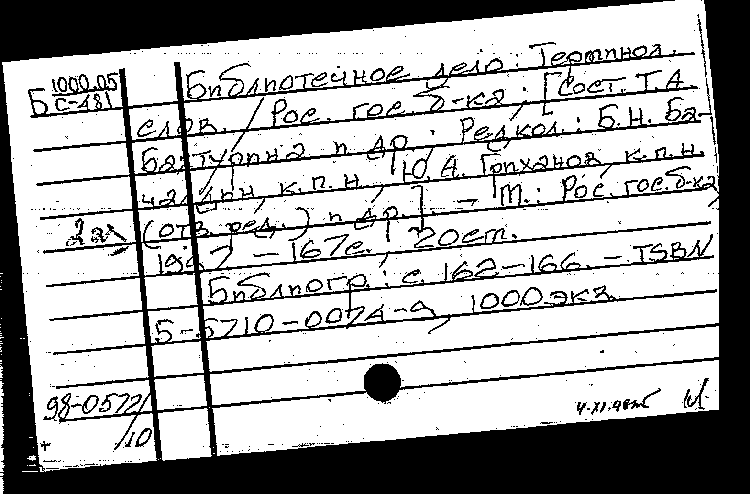 1000.05
Б С-481
Библиотечное дело: Терминол.
слов. / Рос. гос. б-ка; [Сост. Т.А.
Бахтурина и др.; Редкол.: Б.Н. Ба-
чалдин, к.п.н., Ю.А. Гриханов, к.п.н.
(отв. ред.) и др.]. - М.: Рос. гос. б-ка,
2 эк
1997 - 167с.; 20см.
Библиогр.: с. 162-166. - ISBN
5-5710-0074-9, 1000 экз.
98-0572/
/10
4.XI.98